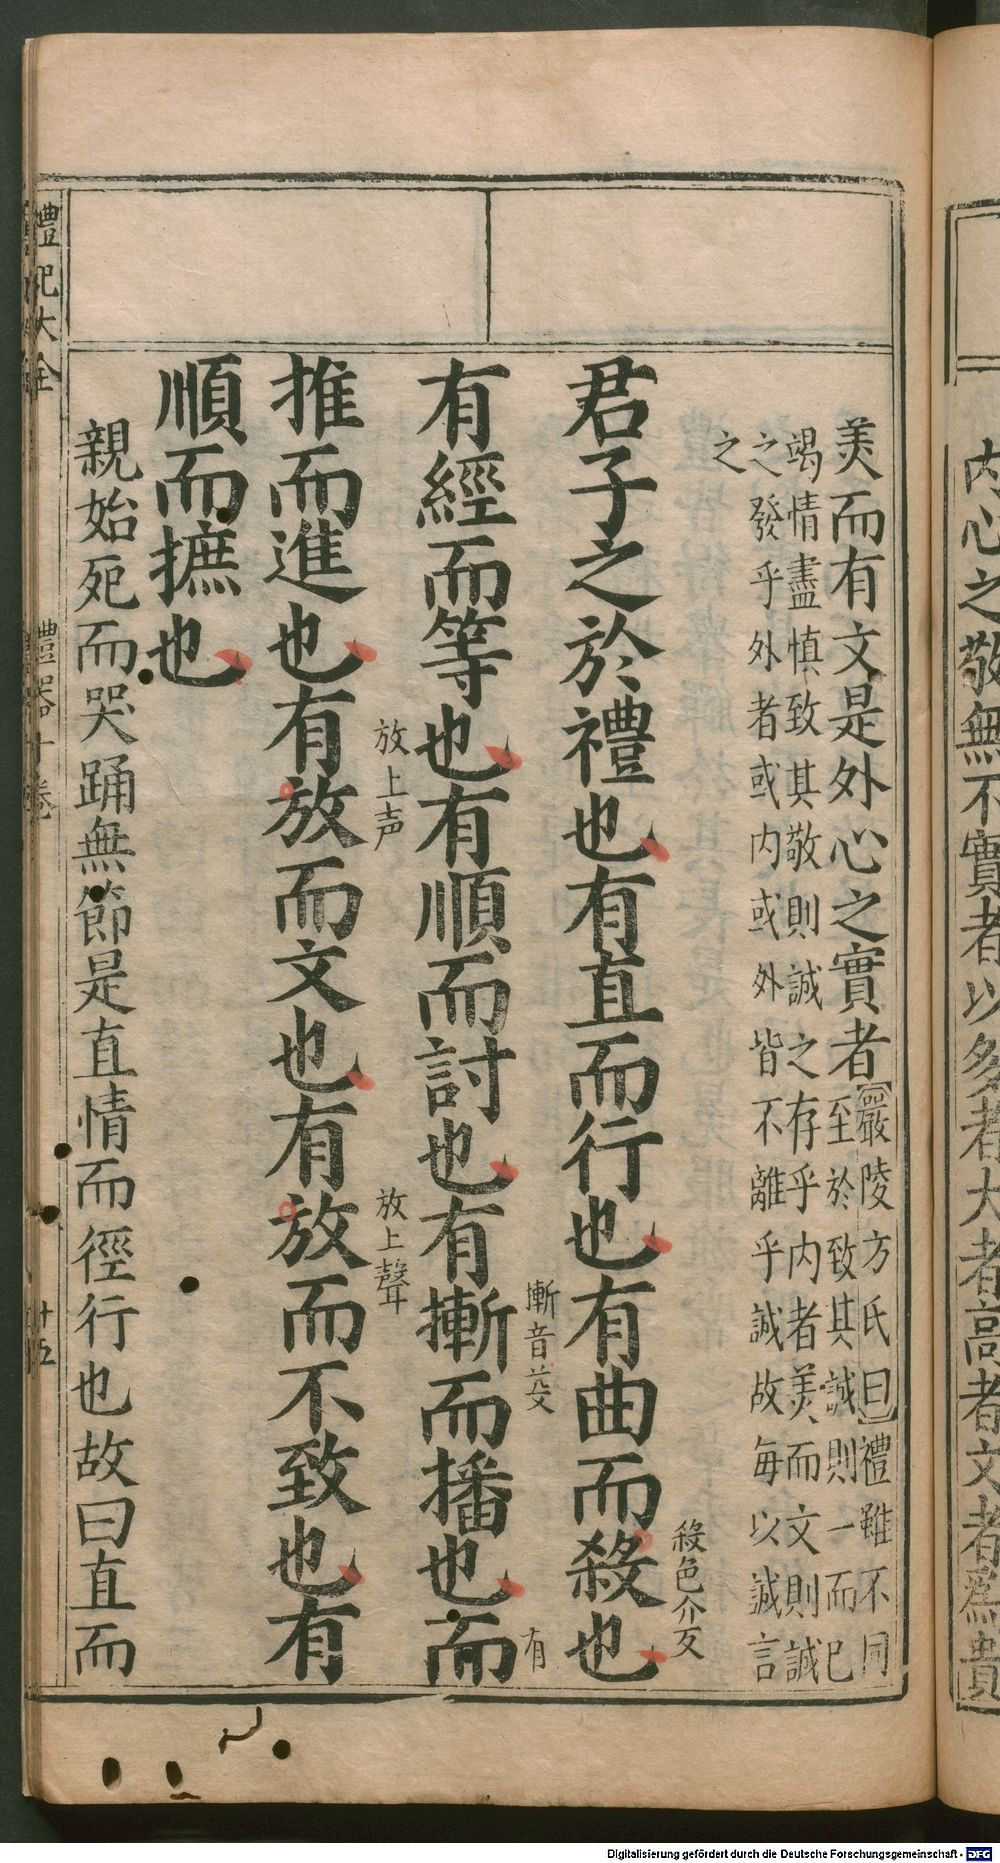 内心之敬無不實者以多者大者高者文者爲貴
美而有文是外心之實者【嚴陵方氏曰】禮雖不同
至於致其誠則一而已
竭情盡慎致其敬則誠之存乎内者美而文則誠
之發乎外者或内或外皆不離乎誠故毎以誠言
之
殺色介反
君子之於禮也有直而行也有曲而殺也
摲音芟
有
有經而等也有順而討也有摲而播也而
放上声
放上聲
推而進也有放而文也有放而不致也有
順而摭也
親始死而哭踊無節是直情而徑行也故曰直而
禮記大全
禮器十卷
十五
Digitalisierung gefördert durch die Deutsche Forschungsgemeinschaft - DFG